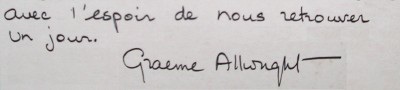 avec l'espoir de nous retrouver
un jour.
Graeme Allwright